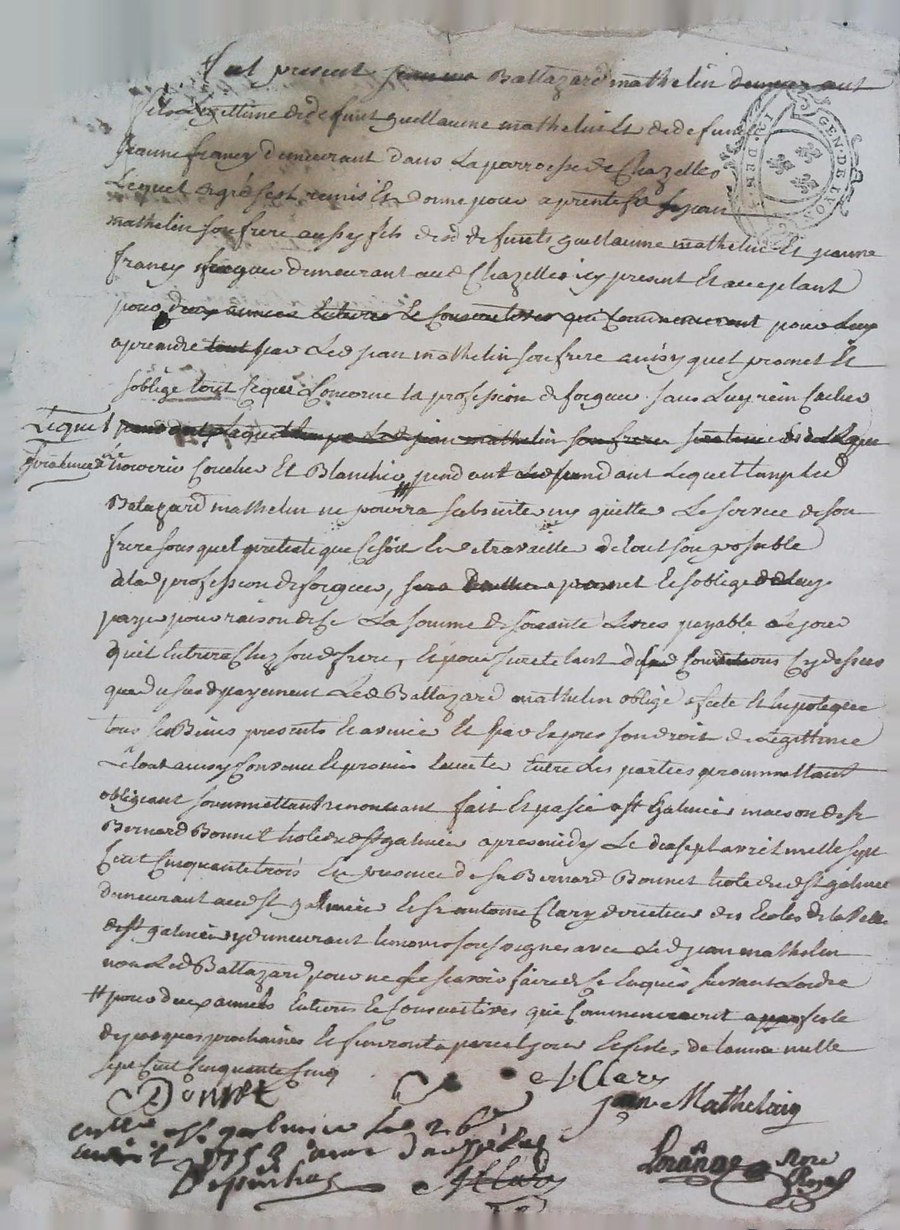 fut present Baltazard mathelin demeurant
fils Legittime de defunt guellaume mathelin Et de defunte
Jeanne francy demeurant dans La parroesse de Chazelles
Lequel de gré s'est remis Et donne pour aprentif a jean
mathelin son frere aussy fils desd defunts guellaume mathelin Et jeanne
francy forgeur demeurant aud Chazelles icy present Et acceptant
pour deux années Entieres Et Consecutives qui Commenceront pour Luy
aprendre tout par Led jean mathelin son frere auisy quel promet Et
s'oblige tout Ceque Concerne La profession de forgeur sans Luy rien Cacher
Lequel pendant Lequel temps Led jean mathelin son frere
nourrir Coucher Et Blanchir, pendant Lequel temps Led
Balazard mathelin ne pourra s'absenter ny quitter Le service de son
frere sous quel pretexte que Ce soit Et de travailler de tout son possible
a Lad profession de forgeur, promet Et s'oblige de Luy
payer pour raison de Ce La somme de soixante Livres payable a Le jour
qu'il Entrera Chez sond frere, Et pour surete tant desd Conditions Cy dessus
que dusus payement Led Baltazard mathelin oblige afecte Et hipoteque
tous ses Biens presents Et avenir Et par Expres son droit de Legittime
Le tout ainsy Convenu Et promis Entre Les parties promettant
obligeant soummettant renonceant fait Et passé a st Galmier maison de sr
Bernard Bonnet hote de st galmier apres midy Le dixsept avril mille sept
Cent Cinquante trois En presence de sr Bernard Bonnet hote de st galmier
demeurant aud st galmier Et sr antoine Clary directeur des Ecoles de La ville
de st galmier y demeurant temoins soussignes avec Led jean mathelin
non Led Baltazard pour ne Le scavoir faire de Ce Enquis suivant Lordre
# pour deux années Entieres Et Consecutives que Commenceront feste
de paques prochaines Et finiront a pareil jour Et festes de Lanne mille
sept Cent Cinquante Cinq
Bonnet Clary
jean Mathelaig
a st galmier Le 26e
avril 1753
Nore Royal
GEN. DE LYON